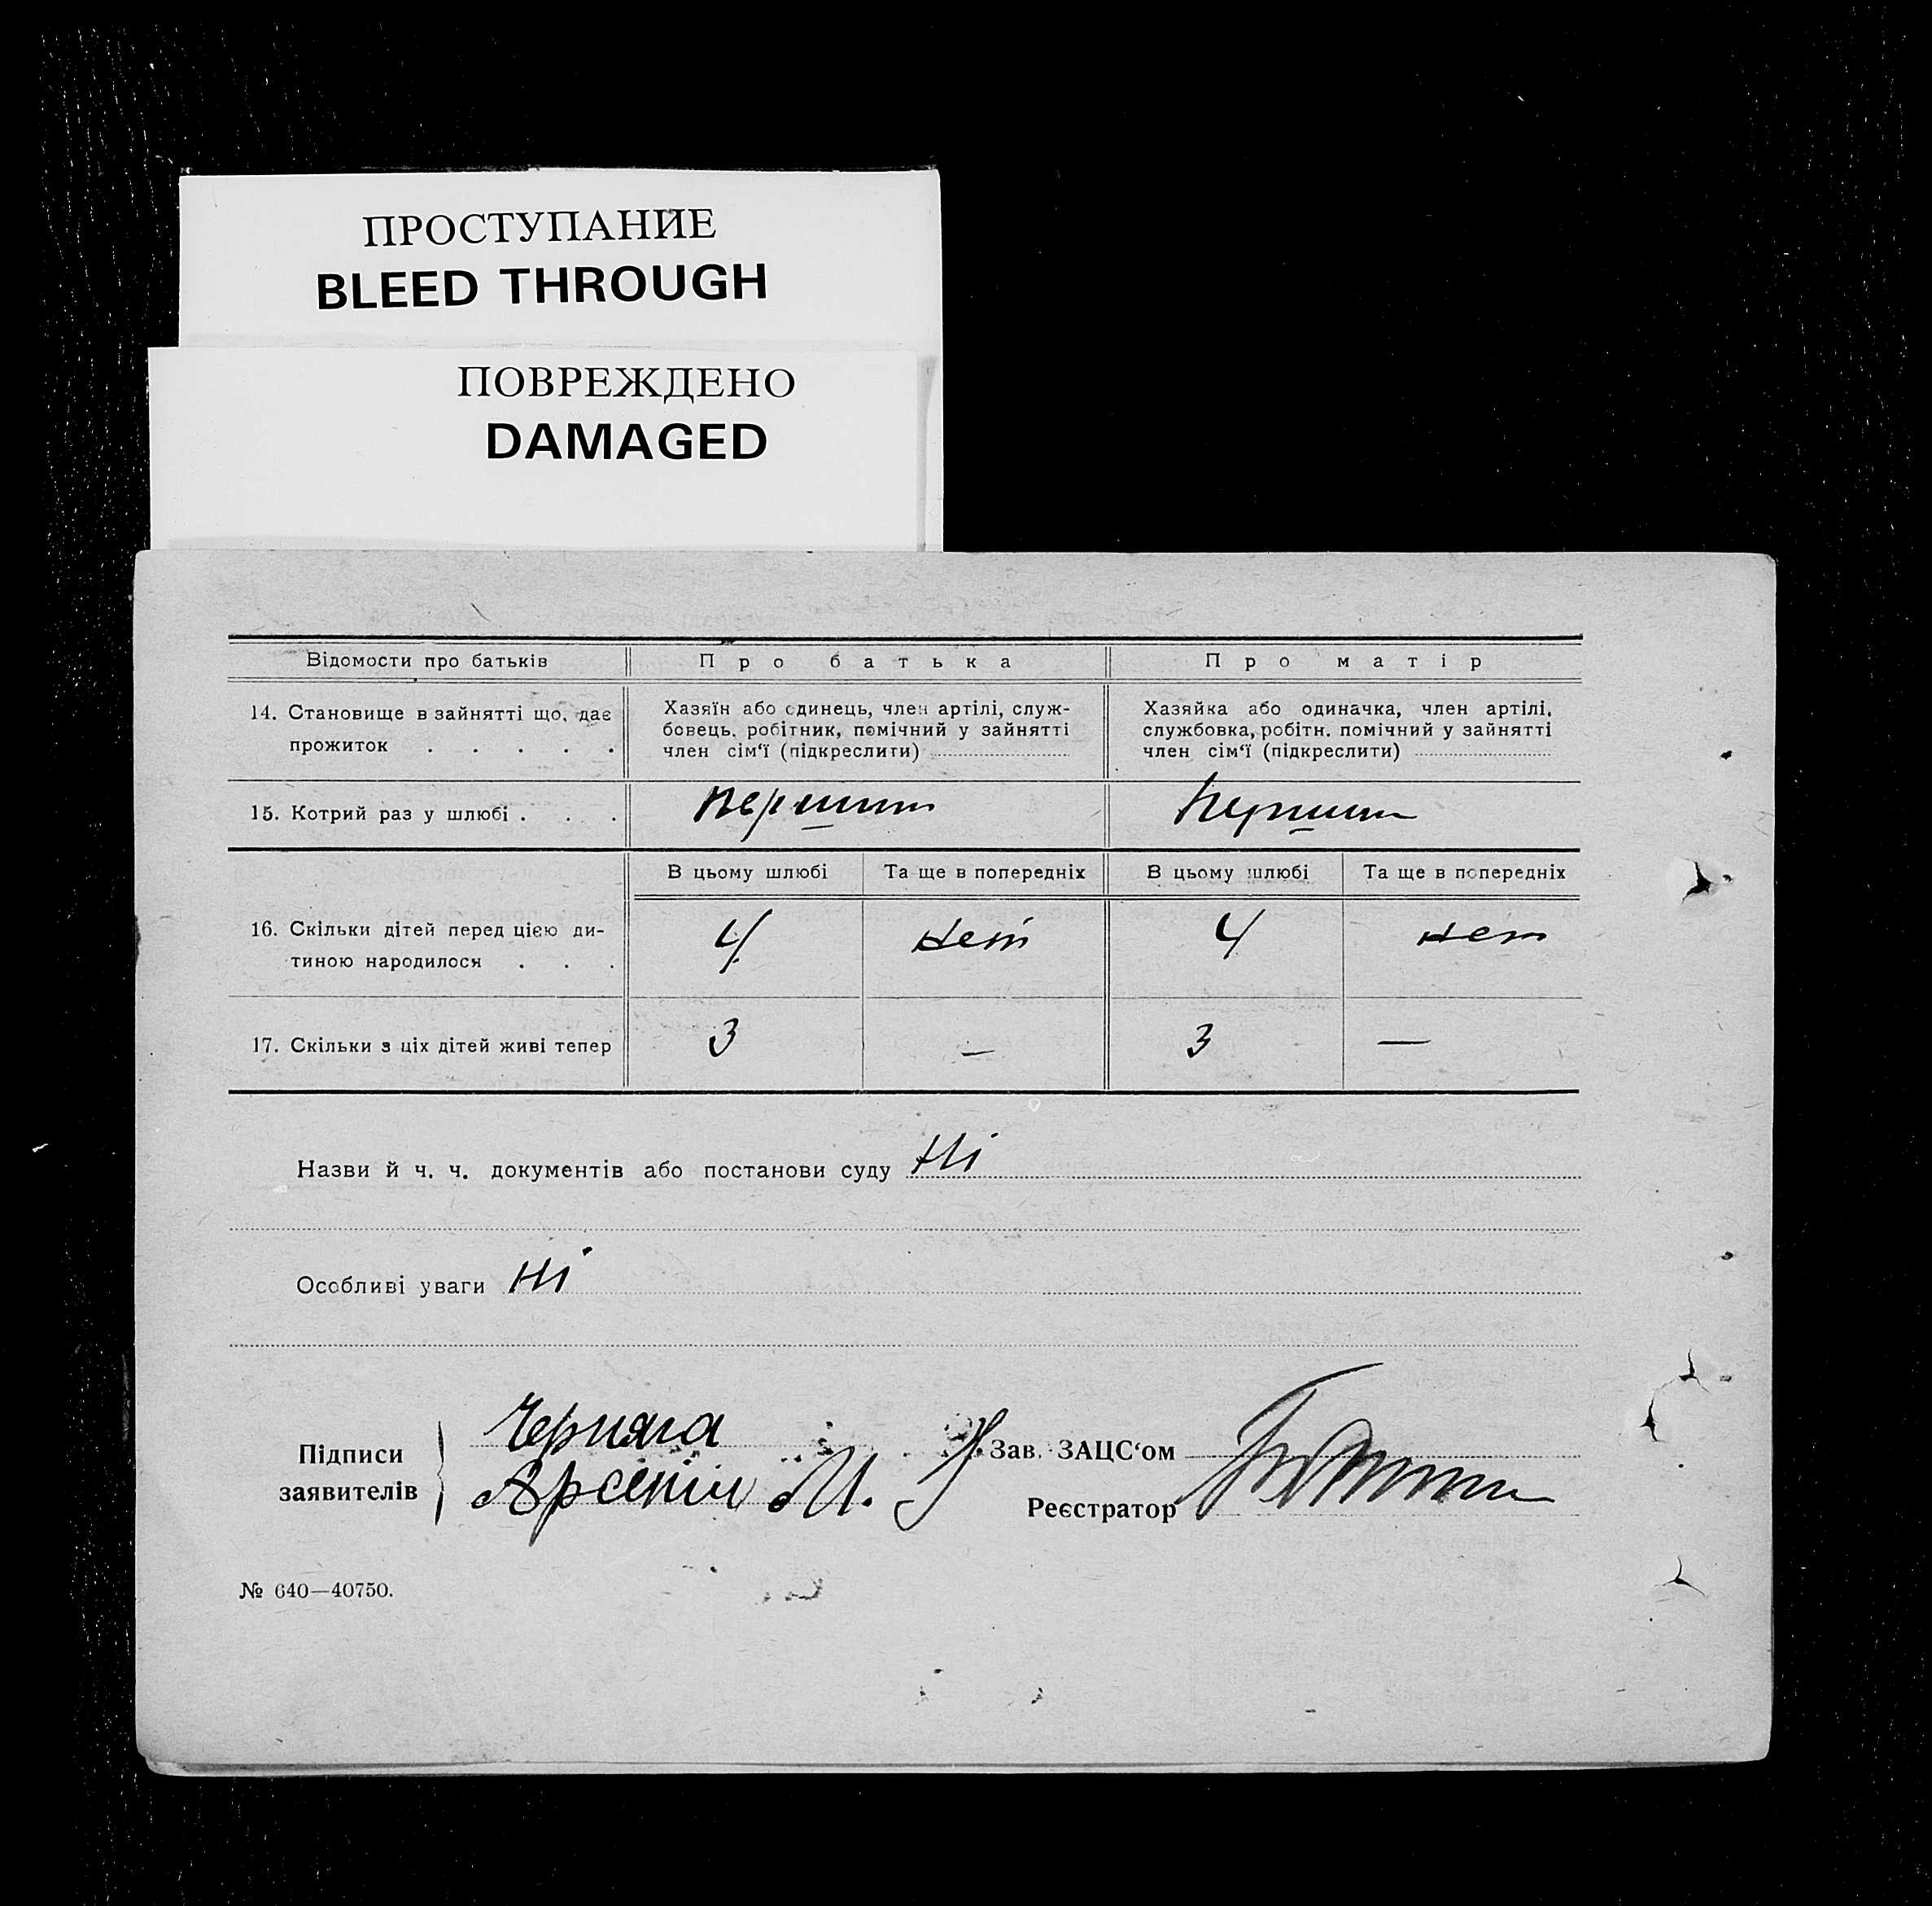 ПРОСТУПАНИЕ
BLEED THROUGH
ПОВРЕЖДЕНО
DAMAGED
Відомости про батьків
Про батька
Про матір
14. Становище в зайнятті що, дає
прожиток . . . . .
Хазяїн або одинець, член артілі, служ-
бовець, робітник, помічний у зайнятті
член сім'ї (підкреслити)
Хазяйка або одиначка, член артілі,
службовка, робітн. помічний у зайнятті
член сім'ї (підкреслити)
15. Котрий раз у шлюбі . . .
В цьому шлюбі
Та ще в попередніх
В цьому шлюбі
Та ще в попередніх
16. Скільки дітей перед цією ди-
тиною народилося . . .
4
нет
4
нет
17. Скільки з ціх дітей живі тепер
3
—
3
—
Назви й ч. ч. документів або постанови суду Ні
Особливі уваги Ні
Підписи
заявителів
Черняга
Арсентій И.
Зав. ЗАЦС'ом
Реєстратор
№ 640—40750.